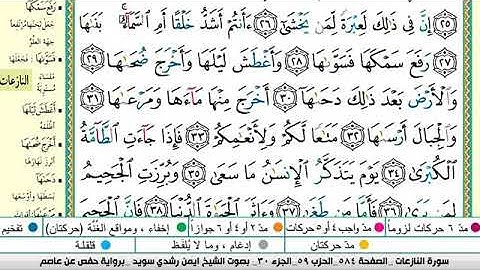 ٢٥ إِنَّ فِي ذَٰلِكَ لَعِبْرَةً لِّمَن يَخْشَىٰٓ ٢٦ ءَأَنتُمْ أَشَدُّ خَلْقًا أَمِ ٱلسَّمَآءُ ۚ بَنَىٰهَا
٢٧ رَفَعَ سَمْكَهَا فَسَوَّىٰهَا ٢٨ وَأَغْطَشَ لَيْلَهَا وَأَخْرَجَ ضُحَىٰهَا ٢٩
وَٱلْأَرْضَ بَعْدَ ذَٰلِكَ دَحَىٰهَآ ٣٠ أَخْرَجَ مِنْهَا مَآءَهَا وَمَرْعَىٰهَا ٣١
وَٱلْجِبَالَ أَرْسَىٰهَا ٣٢ مَتَٰعًا لَّكُمْ وَلِأَنْعَٰمِكُمْ ٣٣ فَإِذَا جَآءَتِ ٱلطَّآمَّةُ
ٱلْكُبْرَىٰ ٣٤ يَوْمَ يَتَذَكَّرُ ٱلْإِنسَٰنُ مَا سَعَىٰ ٣٥ وَبُرِّزَتِ ٱلْجَحِيمُ
لِمَن يَرَىٰ ٣٦ فَأَمَّا مَن طَغَىٰ ٣٧ وَءَاثَرَ ٱلْحَيَوٰةَ ٱلدُّنْيَا ٣٨ فَإِنَّ ٱلْجَحِيمَ
رَفَعَ سَمْكَهَا
فَسَوَّاهَا
النازعات
أَغْطَشَ لَيْلَهَا
أظلمه
أَخْرَجَ ضُحَاهَا
أبرز نهارها
دَحَاهَا
بسطها وأوسعها
مدّ ٦ حركات لزوماً مدّ واجب ٤ أو ٥ حركات مدّ ٢ أو ٤ أو ٦ جوازاً إخفاء، ومواقع الغُنَّة (حركتان) تفخيم
مدّ حركتان إدغام، وما لا يُلفَظ قلقلة
سورة النازعات ـ الصفحة ٥٨٤ ـ الحزب ٥٩ ـ الجزء ٣٠ ـ بصوت الشيخ ايمن رشدي سويد ـ برواية حفص عن عاصم